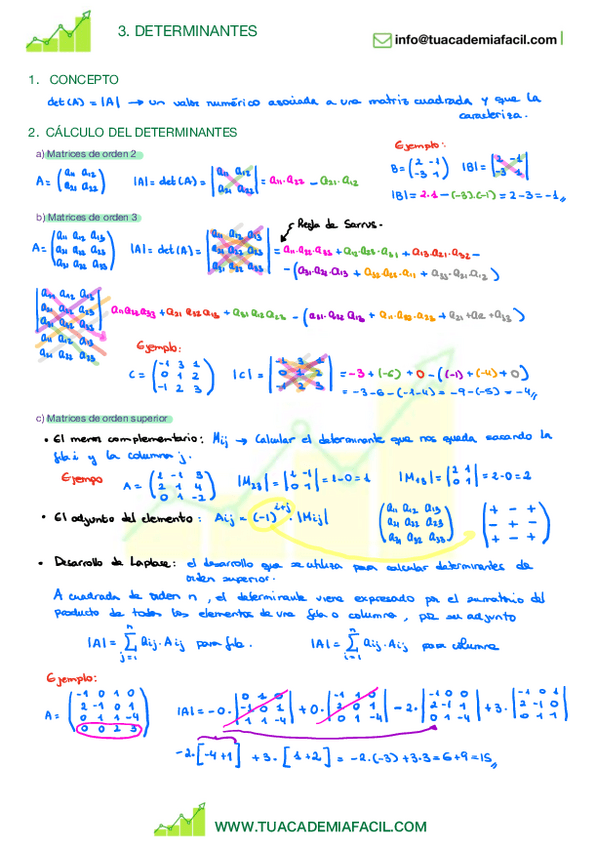 3. DETERMINANTES
info@tuacademiafacil.com
1. CONCEPTO
det(A) = |A| → un valor numérico asociada a una matriz cuadrada y que la
caracteriza.
2. CÁLCULO DEL DETERMINANTES
a) Matrices de orden 2
Ejemplo:
A = (a11 a12 / a21 a22) |A| = det(A) = |a11 a12 / a21 a22| = a11·a22 - a21·a12
B = (2 -1 / -3 1) |B| = |2 -1 / -3 1|
|B| = 2·1 - (-3)·(-1) = 2-3 = -1
b) Matrices de orden 3
Regla de Sarrus.
A = (a11 a12 a13 / a21 a22 a23 / a31 a32 a33) |A| = det(A) = |a11 a12 a13 / a21 a22 a23 / a31 a32 a33| = a11·a22·a33 + a12·a23·a31 + a13·a21·a32 -
- (a31·a22·a13 + a32·a23·a11 + a33·a21·a12)
|a11 a12 a13 / a21 a22 a23 / a31 a32 a33|
a11 a12 a13
a21 a22 a23
a11 a22 a33 + a21 a32 a13 + a31 a12 a23 - (a31·a22 a13 +
Ejemplo:
C = (-1 3 1 / 0 1 2 / -1 2 3) |C| = |-1 3 1 / 0 1 2 / -1 2 3| = -3 + (-6) + 0 - ((-1) + (-4) + 0)
= -3-6-(-1-4) = -9-(-5) = -4
c) Matrices de orden superior
• El menor complementario: Mij → Calcular el determinante que nos queda sacando la
fila i y la columna j.
Ejempo A = (1 -1 3 / 2 1 4 / 0 1 -2) |M23| = |1 -1 / 0 1| = 1-0 = 1 |M13| = |2 1 / 0 1| = 2-0 = 2
• El adjunto del elemento: Aij = (-1)^i+j · |Mij| (a11 a12 a13 / a21 a22 a23 / a31 a32 a33) (+ - + / - + - / + - +)
• Desarrollo de Laplase: el desarrollo que se utiliza para calcular determinantes de
orden superior.
A cuadrada de orden n, el determinante viene expresado por el sumatorio del
producto de todos los elementos de una fila o columna, por su adjunto
|A| = Σ aij·Aij para fila. |A| = Σ aij·Aij para columna
n j=1 n i=1
Ejemplo:
A = (-1 0 1 0 / 2 -1 0 1 / 0 1 1 -4 / 0 0 2 3) |A| = -0·|0 1 0 / -1 0 1 / 1 1 -4| + 0·|-1 1 0 / 2 0 1 / 0 1 -4| - 2·|-1 0 0 / 2 -1 1 / 0 1 -4| + 3·|-1 0 1 / 2 -1 0 / 0 1 1|
-2·[-4+1] + 3·[1+2] = -2·(-3)+3·3 = 6+9 = 15
WWW.TUACADEMIAFACIL.COM